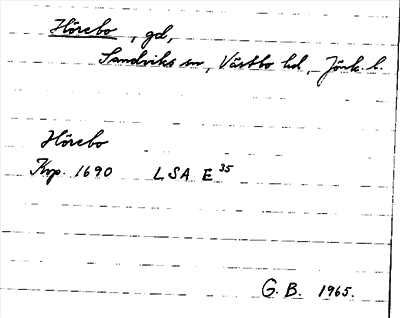 Hörebo, gd,
Sandviks sn, Västbo hd, Jönk. l.
Hörebo
Krp. 1690 LSA E 35
G. B. 1965.